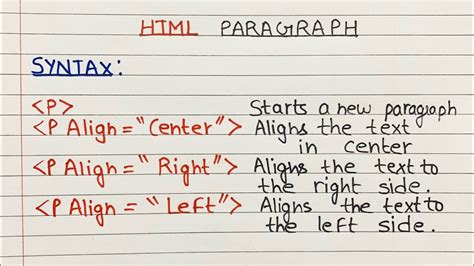 HTML PARAGRAPH
SYNTAX:
<P> Starts a new paragraph
<P Align = "Center"> Aligns the text
in center
<P Align = " Right"> Aligns the text to
the right side.
<P Align = " Left"> Aligns the text to
the left side.